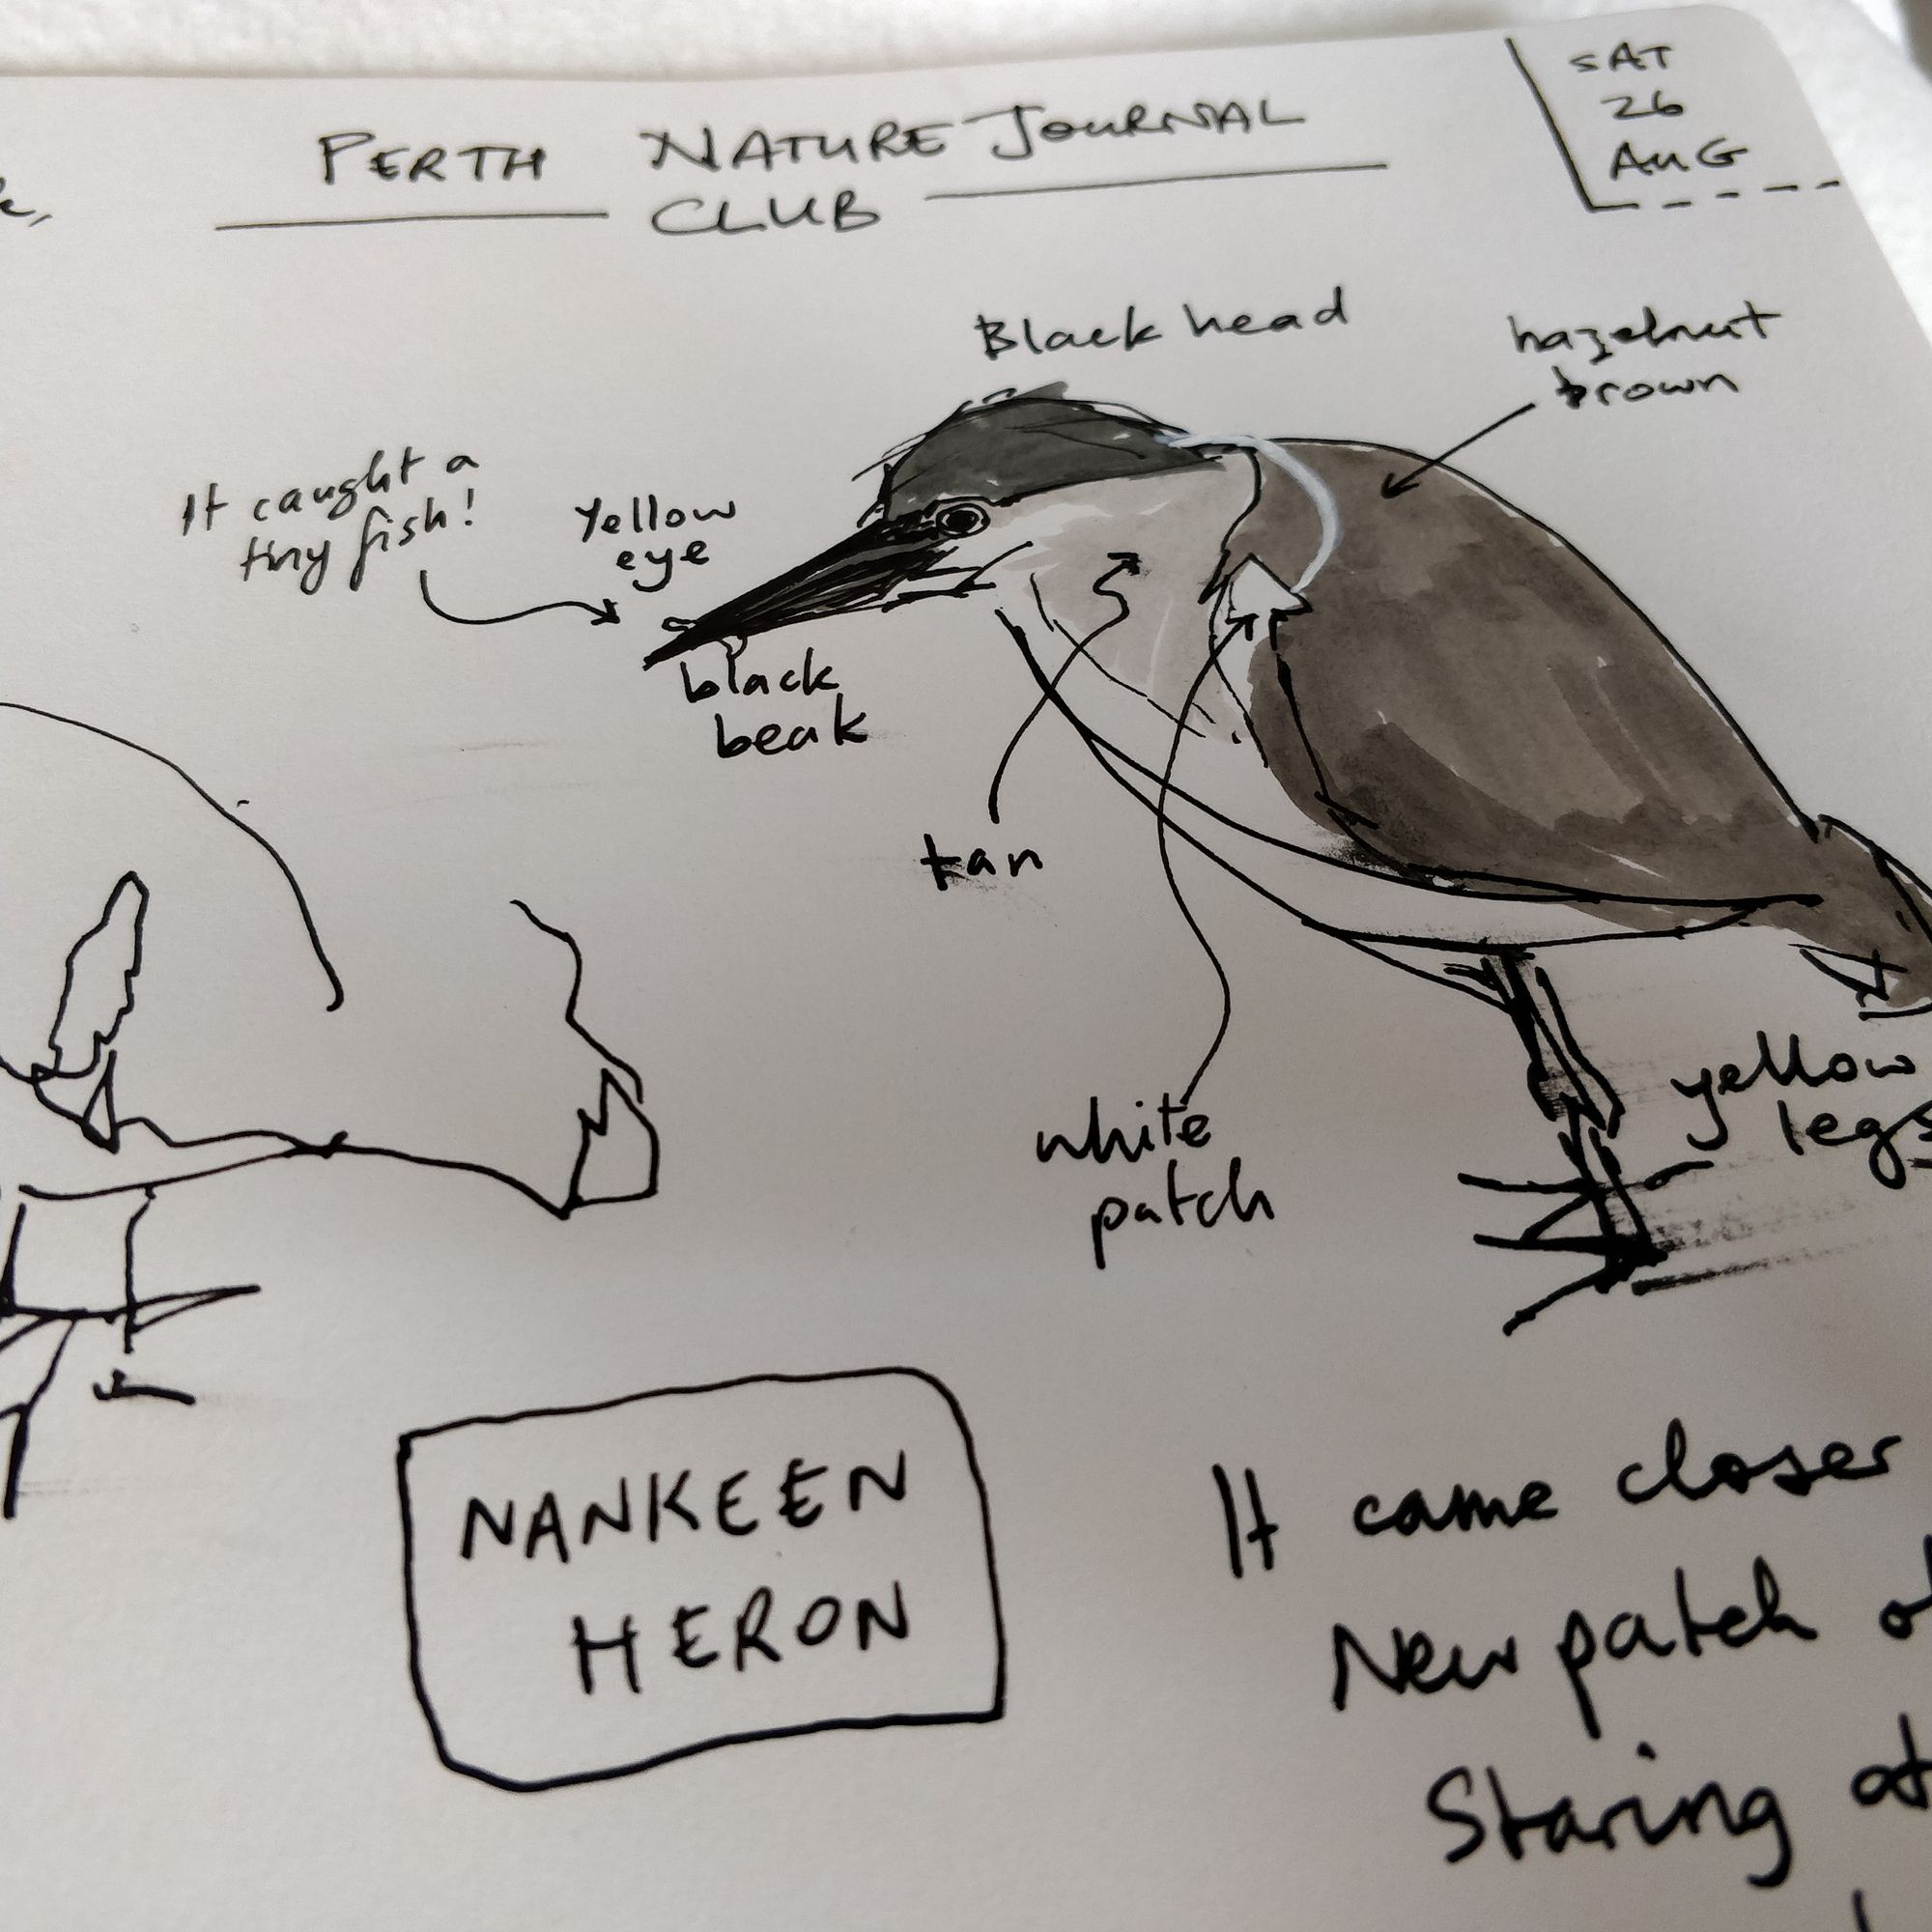 PERTH NATURE JOURNAL
CLUB
SAT
26
AUG
Black head
hazelnut
brown
It caught a
tiny fish!
Yellow
eye
black
beak
tan
white
patch
yellow
legs
NANKEEN
HERON
It came closer
New patch
Staring at